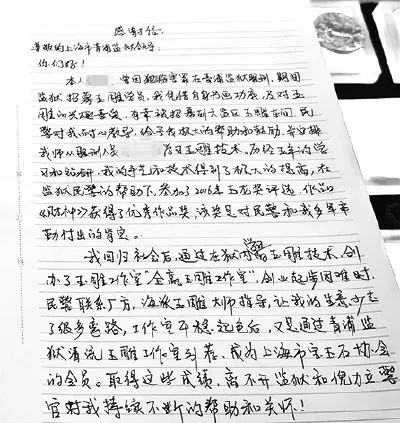 感谢信
尊敬的上海市青浦监狱领导:
你们好!
本人 曾因犯罪害在青浦监狱服刑,期间
监狱招募玉雕学员,我凭借自身书画功底,及对玉
雕的兴趣喜爱,有幸被招募到六监区玉雕车间.民
警对我耐心教导,给予我极大的帮助和鼓励,并安排
我师从服刑人 学习玉雕技术,历经五年的学
习和钻研,我的手艺和技术得到了极大的提高,在
监狱民警的帮助下,参加了2016年玉龙奖评选,作品
《财神》获得了优秀作品奖,该奖是对民警和我多年辛
勤付出的肯定。
我回归社会后,通过在狱内所学玉雕技术,创
办了玉雕工作室“金赢玉雕工作室”,创业起步困难时,
民警联系厂方,海派玉雕大师指导,让我的生意少走
了很多弯路,工作室平稳起色后,又是通过青浦监
狱清流玉雕工作室引荐,成为上海市宝玉石协会
的会员。取得这些成绩,离不开监狱和倪力立警
官对我持续不断的帮助和关怀!